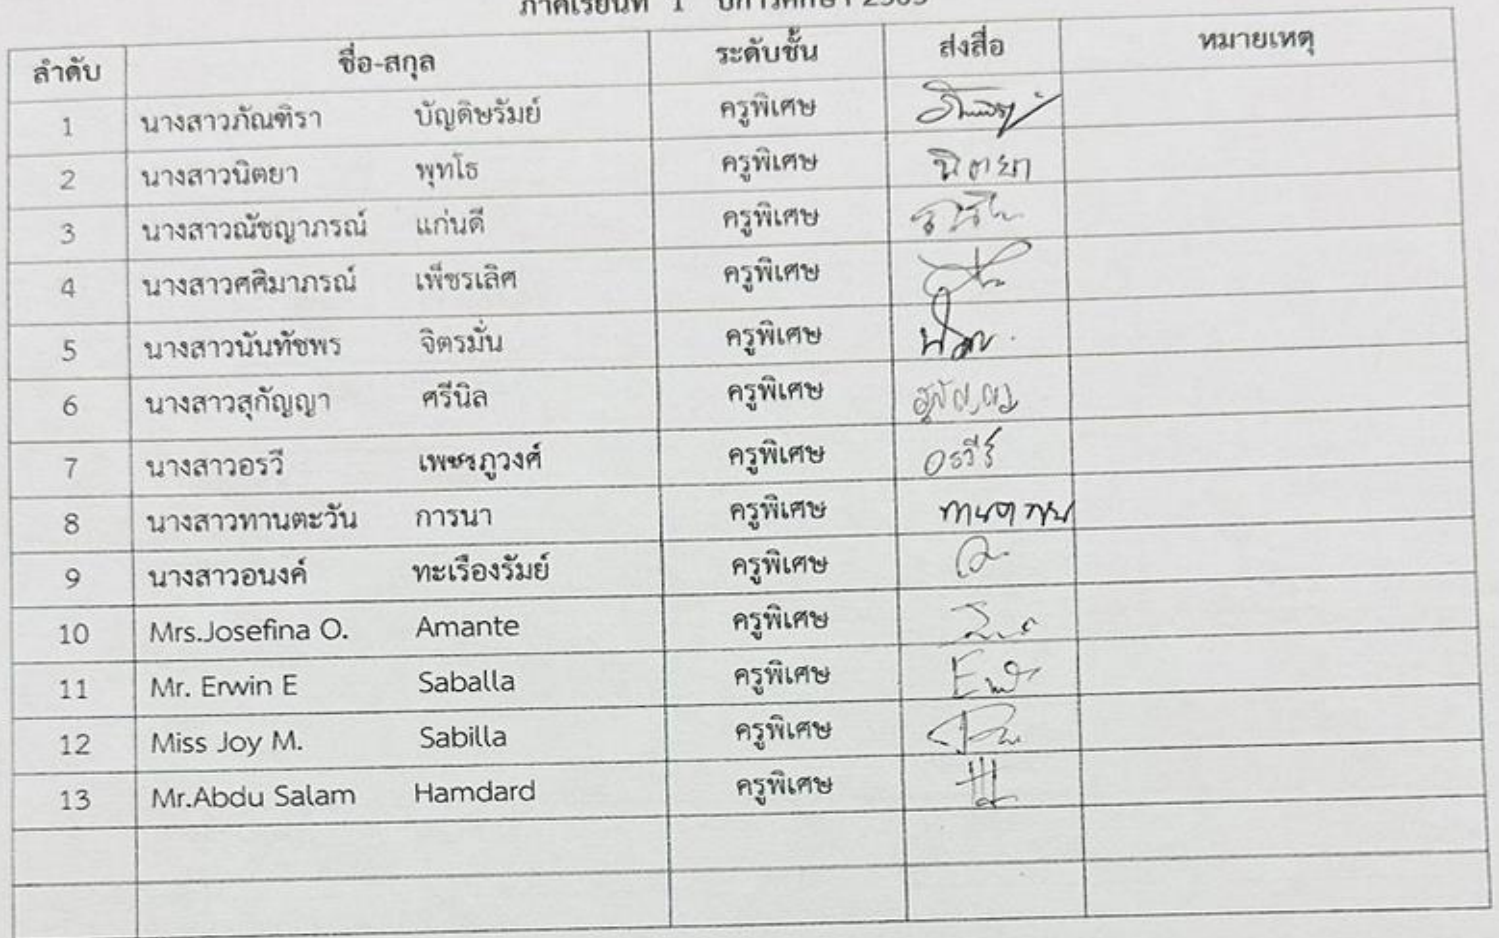 ภาคเรียนที่ 1 ปีการศึกษา 2565
ลำดับ ชื่อ-สกุล ระดับชั้น ส่งสื่อ หมายเหตุ
1 นางสาวภัณฑิรา บัญดิษรัมย์ ครูพิเศษ
2 นางสาวนิตยา พุทโธ ครูพิเศษ นิตยา
3 นางสาวณัชญาภรณ์ แก่นดี ครูพิเศษ
4 นางสาวศศิมาภรณ์ เพ็ชรเลิศ ครูพิเศษ
5 นางสาวนันทัชพร จิตรมั่น ครูพิเศษ
6 นางสาวสุกัญญา ศรีนิล ครูพิเศษ
7 นางสาวอรวี เพชรภูวงศ์ ครูพิเศษ อรวีร์
8 นางสาวทานตะวัน การนา ครูพิเศษ
9 นางสาวอนงค์ ทะเรืองรัมย์ ครูพิเศษ
10 Mrs.Josefina O. Amante ครูพิเศษ
11 Mr. Erwin E Saballa ครูพิเศษ
12 Miss Joy M. Sabilla ครูพิเศษ
13 Mr.Abdu Salam Hamdard ครูพิเศษ